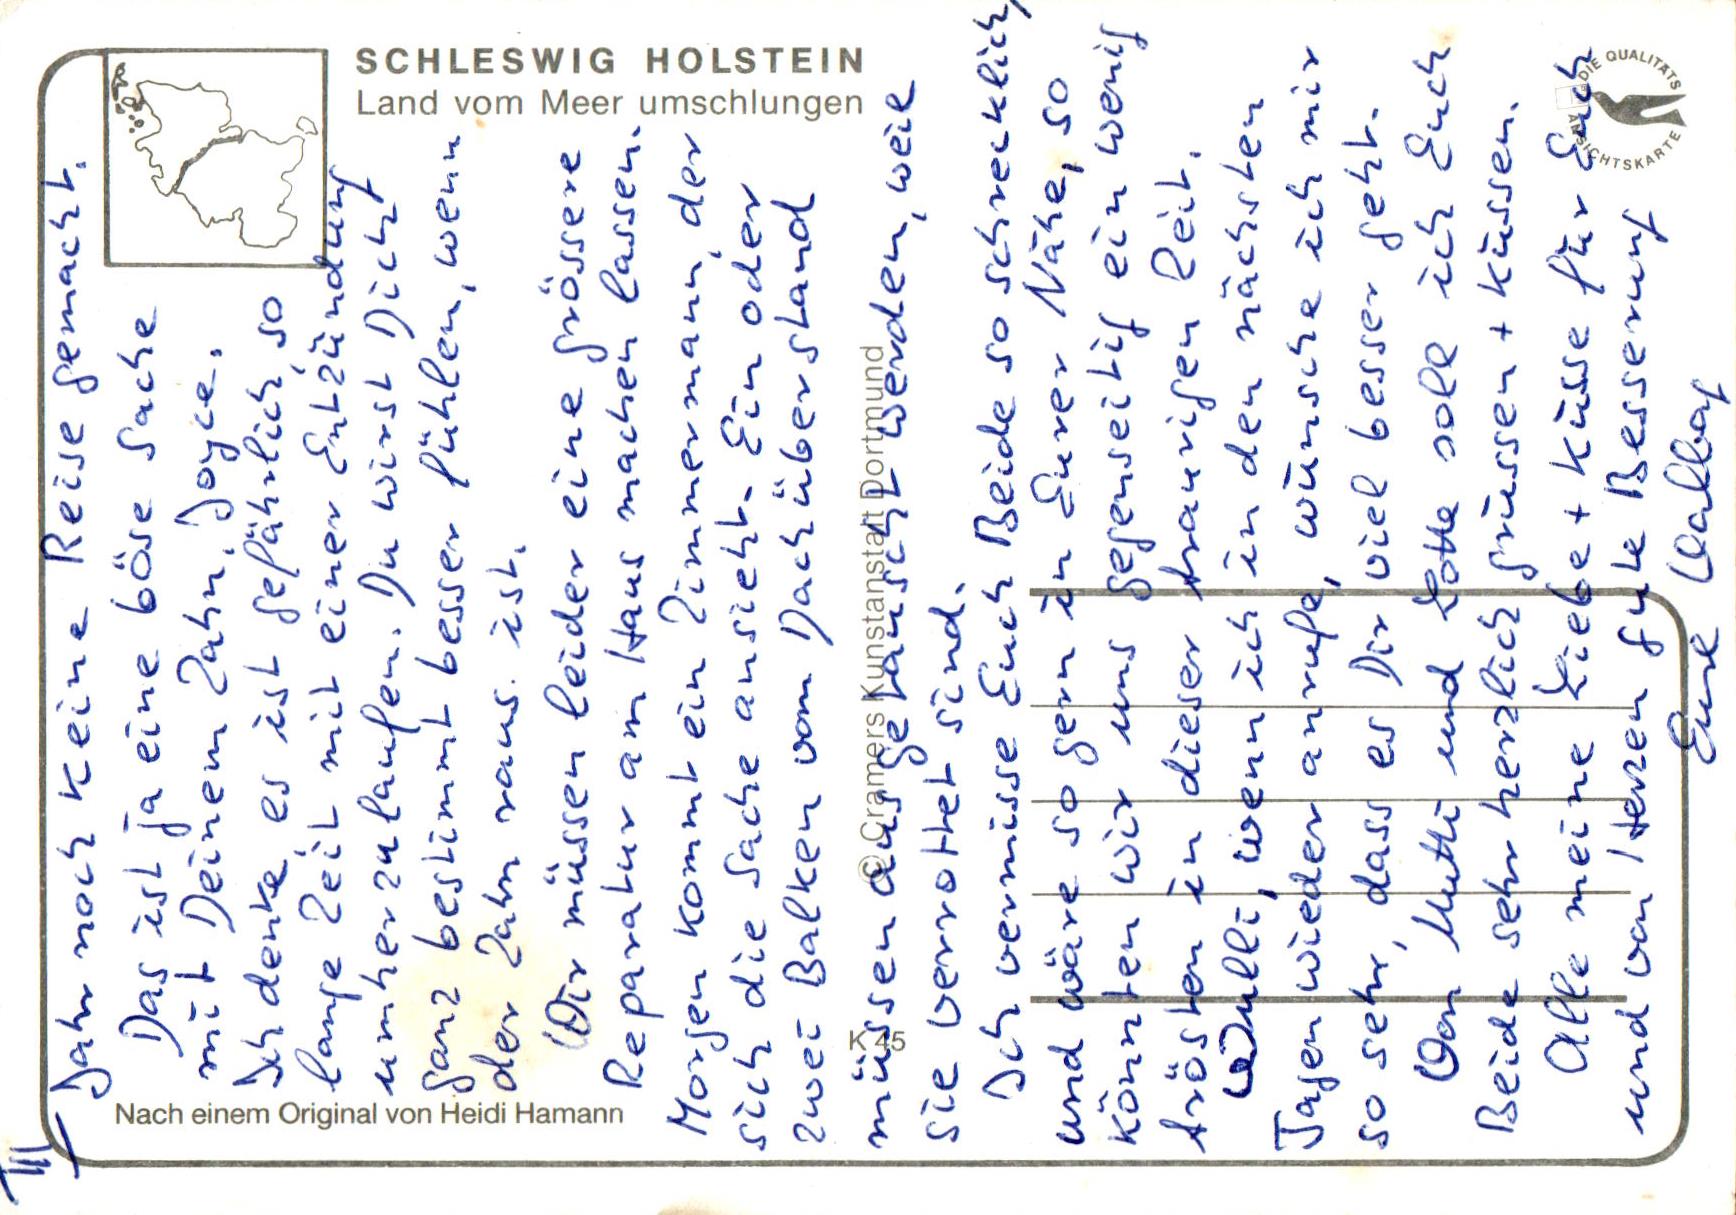 SCHLESWIG HOLSTEIN
Land vom Meer umschlungen
DIE QUALITÄTS
ANSICHTSKARTE
III
Jahr noch keine Reise gemacht.
Das ist ja eine böse Sache
mit Deinem Zahn, Joyce.
Ich denke es ist gefährlich, so
lange Zeit mit einer Entzündung
umherzulaufen. Du wirst Dich
ganz bestimmt besser fühlen, wenn
der Zahn raus ist.
Wir müssen leider eine grössere
Reparatur am Haus machen lassen.
Morgen kommt ein Zimmermann, der
sich die Sache ansieht. Ein oder
zwei Balken vom Dachüberstand
müssen ausgetauscht werden, weil
sie verrottet sind.
Ich vermisse Euch Beide so schrecklich,
und wäre so gern in Eurer Nähe, so
könnten wir uns gegenseitig ein wenig
trösten in dieser traurigen Zeit.
Willi, wenn ich in den nächsten
Tagen wieder anrufe, wünsche ich mir
so sehr, dass es Dir viel besser geht.
Von Mutti und Lotte soll ich Euch
Beide sehr herzlich grüssen + küssen.
Alle meine Liebe + Küsse für Euch
und von Herzen gute Besserung
Eure
© Cramers Kunstanstalt Dortmund
K 45
Nach einem Original von Heidi Hamann